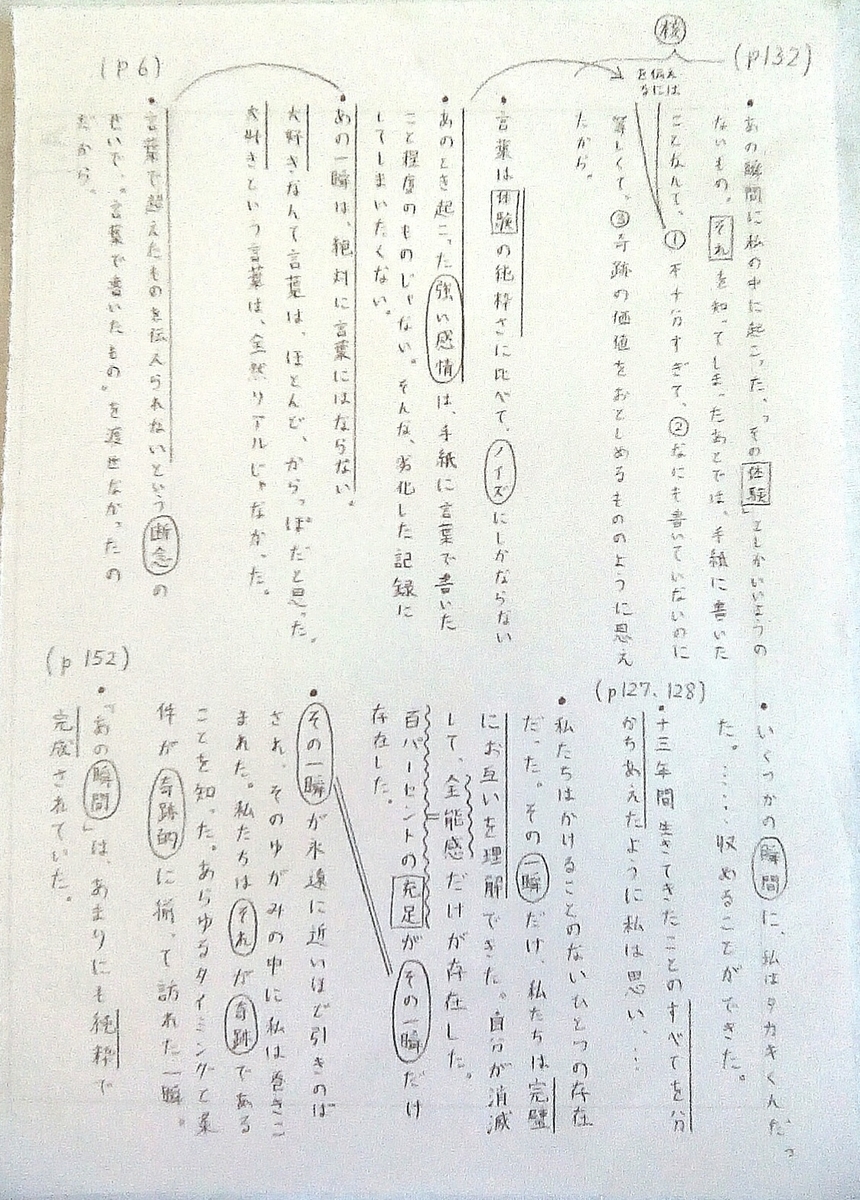 (p132)
核
・あの瞬間に私の中に起こった、「その体験」としかいいようの
ないもの。それを知ってしまったあとでは、手紙に書いた
ことなんて、①不十分すぎて、②なにも書いていないのに
等しくて、③奇跡の価値をおとしめるもののように思え
たから。
・言葉は体験の純粋さに比べて、ノイズにしかならない
・あのとき起こった強い感情は、手紙に言葉で書いた
こと程度のものじゃない。そんな、劣化した記録に
してしまいたくない。
・あの一瞬は、絶対に言葉にはならない。
大好きなんて言葉は、ほとんど、からっぽだと思った。
大好きという言葉は、全然リアルじゃなかった。
(p6)
・言葉で超えたものを伝えられないという断念の
せいで、"言葉で書いたもの"を渡せなかったの
だから。
・いくつかの瞬間に、私はタカキくんだっ
た。……、収めることができた。
(p127、128)
・十三年間生きてきたことのすべてを分
かちあえたように私は思い、…
・私たちはかけることのないひとつの存在
だった。その一瞬だけ、私たちは完璧
にお互いを理解できた。自分が消滅
して、全能感だけが存在した。
百パーセントの充足がその一瞬だけ
存在した。
・その一瞬が永遠に近いほど引きのば
され、そのゆがみの中に私は巻きこ
まれた。私たちはそれが奇跡である
ことを知った。あらゆるタイミングと条
件が奇跡的に揃って訪れた一瞬。
(p152)
・「あの瞬間」は、あまりにも純粋で
完成されていた。